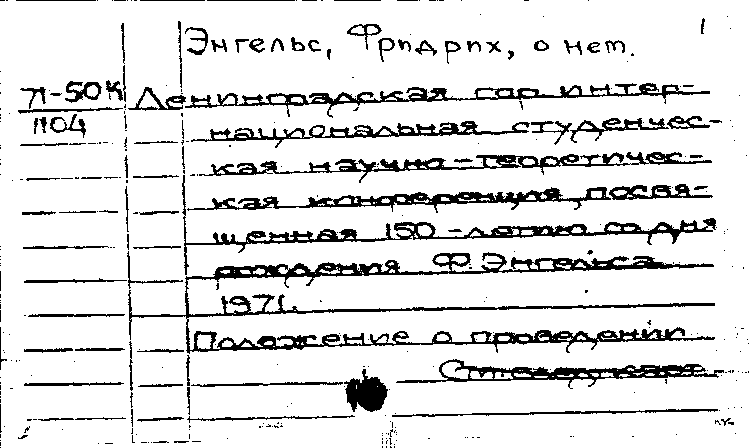 1
Энгельс, Фридрих, о нем.
Л-50К Ленинградская гор. интер-
1104 национальная студенчес-
кая научно-теоретичес-
кая конференция, посвя-
щенная 150-летию со дня
рождения Ф. Энгельса
1971.
Положение о проведении
См. след. карт.